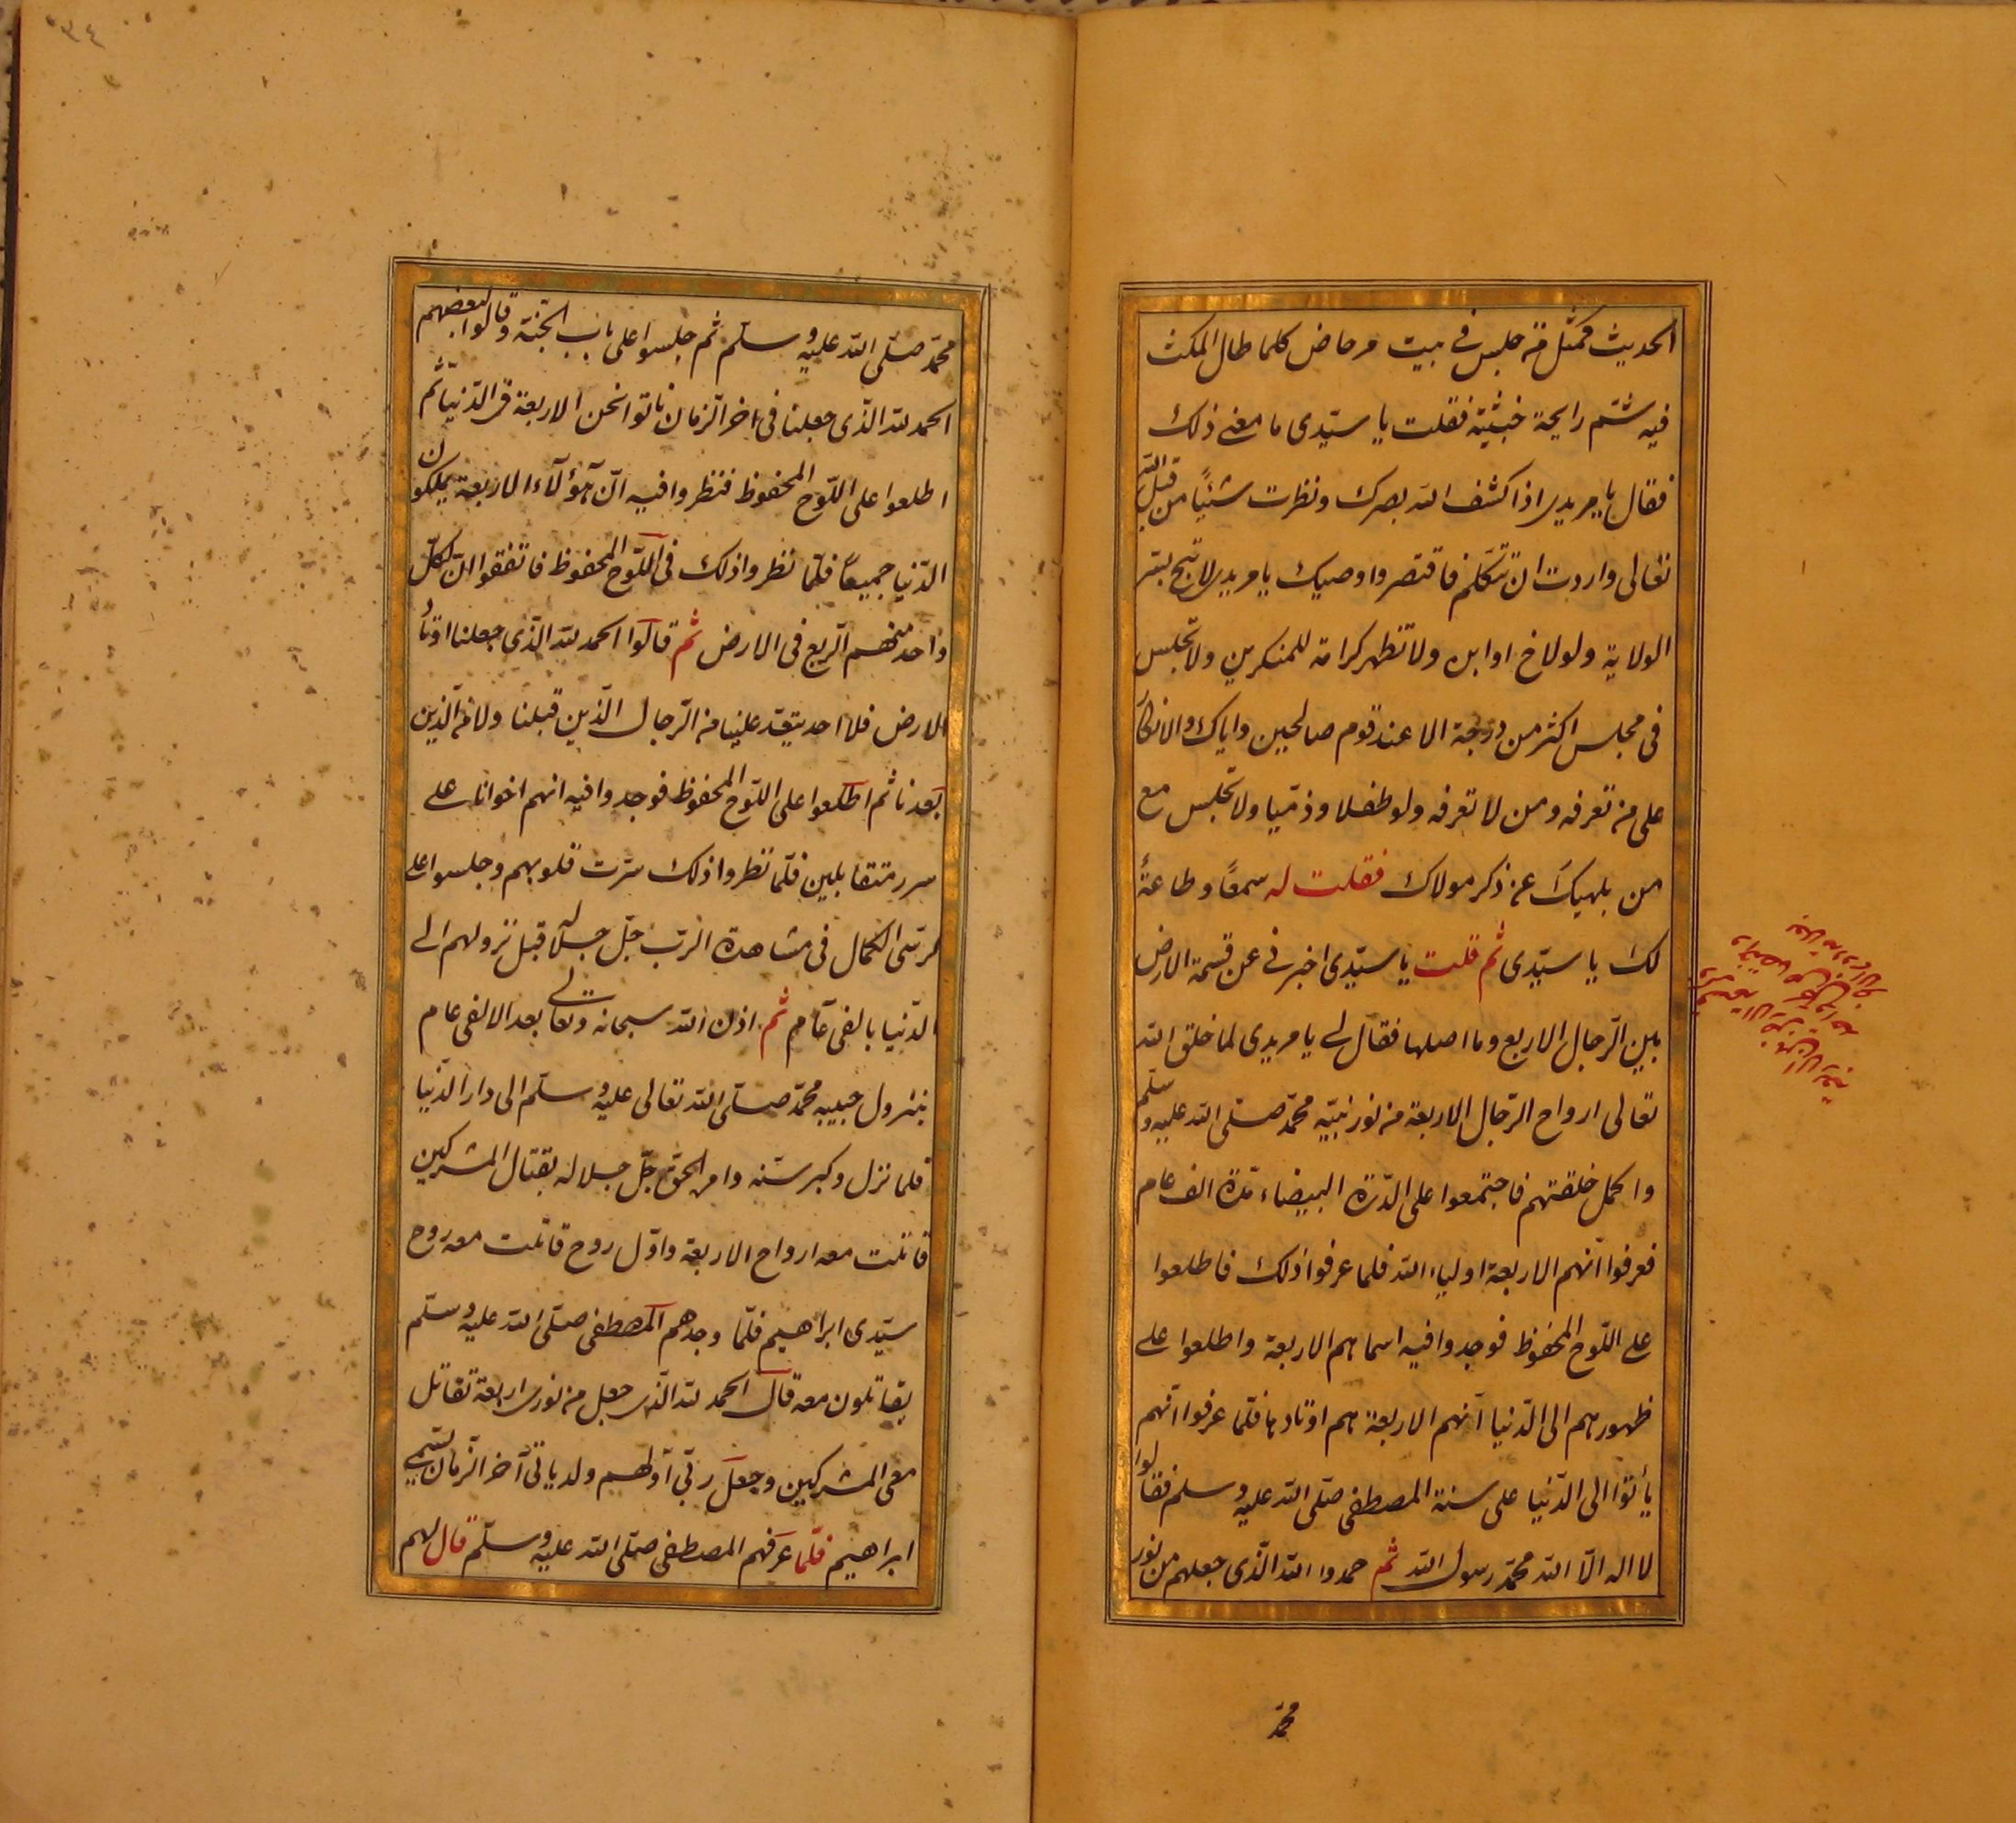 الحديث كمثل من جلس فى بيت مرحاض كلما طال المكث
فيه شتم رايحة خبيثة فقلت يا سيّدى ما معنى ذلك
فقال يا مريدى اذا كشف الله بصرك ونظرت شئياً من قبل الله
تعالى واردت ان تتكلم فاقتصر واوصيك يا مريدى لا تبح بسر
الولاية ولو لاخ او ابن ولا تظهر كرامة للمنكرين ولا تجلس
فى مجلس اكثر من درجة الا عند قوم صالحين واياك والانكا
على من تعرفه ومن لا تعرفه ولو طفلا وذمّيا ولا تجلس مع
من يلهيك عن ذكر مولاك فقلت له سمعًا وطاعةً
لك يا سيّدى ثم قلت يا سيّدى اخبرنى عن قسمة الارض
بين الرّجال الاربع وما اصلها فقال لى يا مريدى لما خلق الله
تعالى ارواح الرّجال الاربعة من نور نبيّه محمّد صلّى الله عليه وسلّم
واكمل خلقتهم فاجتمعوا على الدّرّة البيضاء مدّة الف عام
فعرفوا انّهم الاربعة اولياء الله فلما عرفوا ذلك فاطلعوا
على اللّوح المحفوظ فوجدوا فيه اسماهم الاربعة واطلعوا على
ظهورهم الى الدّنيا انهم الاربعة هم اوتادها فلمّا عرفوا انّهم
يأتوا الى الدّنيا على سنة المصطفى صلّى الله عليه وسلم فقالوا
لا اله الّا الله محمّد رسول الله ثم حمدوا الله الّذى جعلهم من نور
محمّد
محمّد صلّى الله عليه وسلّم ثم جلسوا على باب الجنّة وقالوا لبعضهم
الحمد لله الّذى جعلنا فى اخر الزّمان ناتوا نحن الاربعة فى الدّنيا ثم
اطلعوا على اللّوح المحفوظ فنظروا فيه انّ هؤلآء الاربعة يملكون
الدّنيا جميعاً فلمّا نظروا ذلك فى اللّوح المحفوظ فاتفقوا انّ لكلّ
واحد منهم الربع فى الارض ثم قالوا الحمد لله الّذى جعلنا اوتاد
الارض فلا احد يتعد علينا من الرّجال الّذين قبلنا ولا من الّذين
بعدنا ثم اطلعوا على اللّوح المحفوظ فوجدوا فيه انهم اخوانا على
سرر متقابلين فلمّا نظروا ذلك سرّت قلوبهم وجلسوا على
كرسّى الكمال فى مشاهدة الرّب جلّ جلاله قبل نزولهم الى
الدّنيا بالفى عام ثم اذن الله سبحانه وتعالى بعد الالفى عام
بنزول حبيبه محمّد صلّى الله تعالى عليه وسلّم الى دار الدّنيا
فلما نزل وكبر سنّه وامر الحق جلّ جلاله بقتال المشركين
قاتلت معه ارواح الاربعة واوّل روح قاتلت معه روح
سيّدى ابراهيم فلمّا وجدهم المصطفى صلّى الله عليه وسلّم
يقاتلون معه قال الحمد لله الّذى جعل من نورى اربعة تقاتل
معى المشركين وجعل ربّى اوّلهم ولد ياتى آخر الزّمان يسمى
ابراهيم فلّما عرّفهم المصطفى صلّى الله عليه وسلّم قال لهم